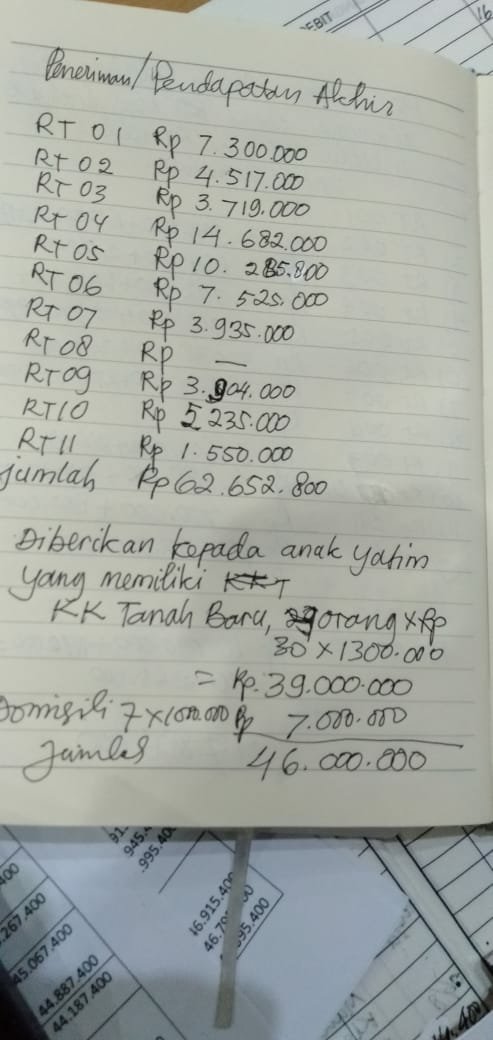 EBIT
16
Peneriman/Pendapatan Akhir
RT 01 Rp 7.300.000
RT 02 Rp 4.517.000
RT 03 Rp 3.719.000
RT 04 Rp 14.682.000
RT 05 Rp 10. 285.800
RT 06 Rp 7. 525.000
RT 07 Rp 3.935.000
RT 08 Rp —
RT 09 Rp 3.904.000
RT 10 Rp 5 235.000
RT 11 Rp 1.550.000
jumlah Rp 62.652.800
Diberikan kepada anak yatim
yang memiliki
KK Tanah Baru, orang x Rp
30 x 1300.000
= Rp. 39.000.000
Domisili 7 x 1000.000 Rp 7.000.000
Jumlah 46.000.000
945.
.995.40
16.915.400
46.79
95.400
400
267.400
45.067.400
44.887.400
44.187.400